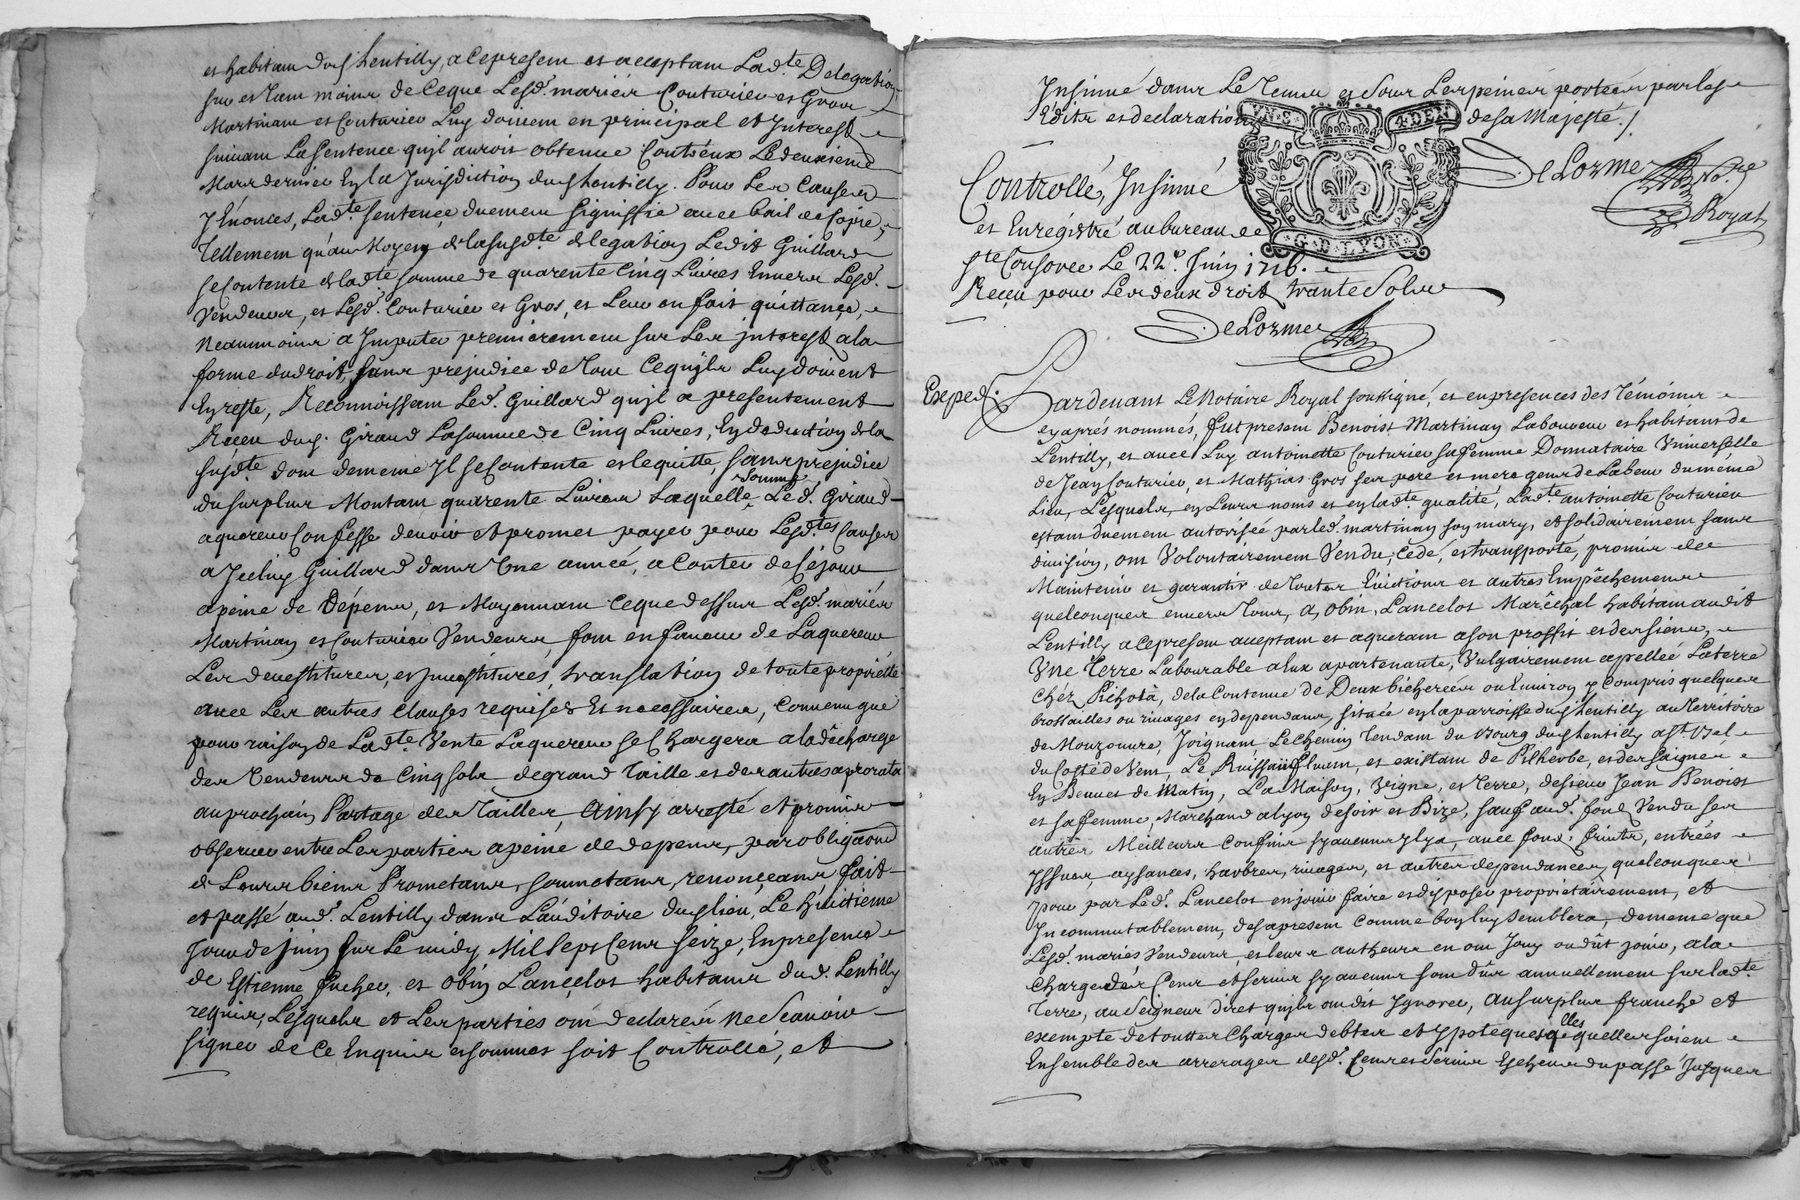 et habitant dud. Lentilly, a ce present et acceptant Lad.te Delegation
sur et tant moins de ceque Lesd. mariés Couturier et Gros
Martinant et Couturier Luy doivent en principal et Interest
suivant La Sentence qu'jl auroit obtenue Contr'eux Le deuxieme
Mars dernier En La Jurisdiction dud. Lentilly. Pour Les Causes
y Enoncés, Lad.te sentence duement signiffié avec bail de Copie,
Tellement qu'au Moyen de la susd.te delegation Ledit Guillard
se Contente de lad.te somme de quarente Cinq Livres Envers Lesd.
Vendeurs, et Lesd. Couturier et Gros, et Leur en fait quittance,
Neantmoins a Imputer premierement sur Les jnterest a la
forme du droit, sans prejudice de Tout Cequ'jls Luy doivent
En reste, Reconnoissant Led. Guillard qu'jl a presentement
Receu dud. Giraud La somme de Cinq Livres, En deduction de la
susd.te dont de meme Jl se Contente et le quitte, sans prejudice
du surplus Montant quarente Livres Laquelle somme Led. Giraud
aquereur Confesse devoir et promet payer pour Lesd.tes Causes
a Jceluy Guillard dans Une année, a Conter de Ce jour
a peine de Dépens, et Moyennant ceque dessus Lesd. mariés
Martinay et Couturier Vendeurs, font en faveur de Laquereur
Les devestitures, et jnvestitures, translation de toute proprieté
avec Les autres clauses requises Et necessaires, Convenu que
pour raison de Lad.te Vente Laquereur se Chargera a la décharge
des Vendeurs de Cinq sols de grand Taille et des autres a prorata
au prochain Partage des Tailles, Ainsy arresté et promis
observer entre Les parties a peine de depens, par obligaõns
de Leurs biens Prometans, soumetans, renonçeans fait
et passé aud. Lentilly dans L'auditoire dud. lieu, Le huitieme
Jour de juin sur Le midy, Mil Sept Cens seize, En presence
de Estienne fucher, et obin Lançelot habitans dud. Lentilly
requis, Lesquels et Les parties ont declarés Ne Scavoir
signer de ce Enquis et sommés soit Controllé, et
Insinué dans Le Tems et sous Les peines portées par les
Edits et declarations de sa Majesté./.
YN.S 4.DEN
G.D.LYON
DeLorme No.re Royal
Controllé, Insinué
et Enrégistré au bureau de
s.te Consorce Le 22.e Juin 1716.
Reçu pour Les deux droits trante Sols
DeLorme
Exped.
Pardevant Le Notaire Royal soussigné, et en presences des Témoins
cy aprés nommés, fut present Benoist Martinay Laboureur et habitant de
Lentilly, et avec Luy antoinette Couturier sa femme Donnataire Universelle
de Jean Couturier, et Mathias Gros ses pere et mere gens de Labeur du méme
Lieu, Lesquels, en Leurs noms et en lad.te qualité, Lad.te antoinette Couturier
estant duement autorisée par led. martinay son mary, et solidairement sans
division, ont Volontairement Vendu, cedé, et transporté, promis de
Maintenir et garantir de Toutes Evictions et autres Empêchemens
quelconques envers Tous, a obin Lancelot Maréchal habitant audit
Lentilly a ce present acceptant et aquerant a son proffit et des siens,
Une Terre Labourable a Eux apartenante, Vulgairement apelleé La terre
Chéz Pichotà, de la Contenue de Deux bicherées ou Environ y Compris quelques
brossailles ou rivages en dependans, située en la parroisse dud. Lentilly au Territoire
de Mouzonure, Joignant Le Chemin Tendant du Bourg dud. Lentilly a s.t Bel
du Costé de Vent, Le Ruisseau fluent, et existant de Pilherbe, et des saignés
En Bennet de Matin, La Maison, Vigne, et Terre, de sieur Jean Benoist
et sa femme, Marchand a Lyon de soir et Bize, sauf aud. fond Vendu ses
autres Meilleurs Confins sy aucuns y ly a, avec fond, fruits, entrées
yssues, aysances, harbres, rivages, et autres dependances, quelconques
Pour par Led. Lancelot en joüir faire et disposer proprietairement, et
Incommutablement, des a present comme bon luy semblera, de meme que
Lesd. mariés Vendeurs, et leurs autheurs en ont Jouy ou dût joüir, a la
charge des Cens et servis sy aucuns sont dûs annuellement sur lad.te
Terre, au Seigneur direct qu'jls ont dit Ignorer, au surplus franche et
exempte de toutes Charges debtes et ypoteques quelles quelles soient
Ensemble des arrerages desd. Cens et Servis Echeus du passé Jusques